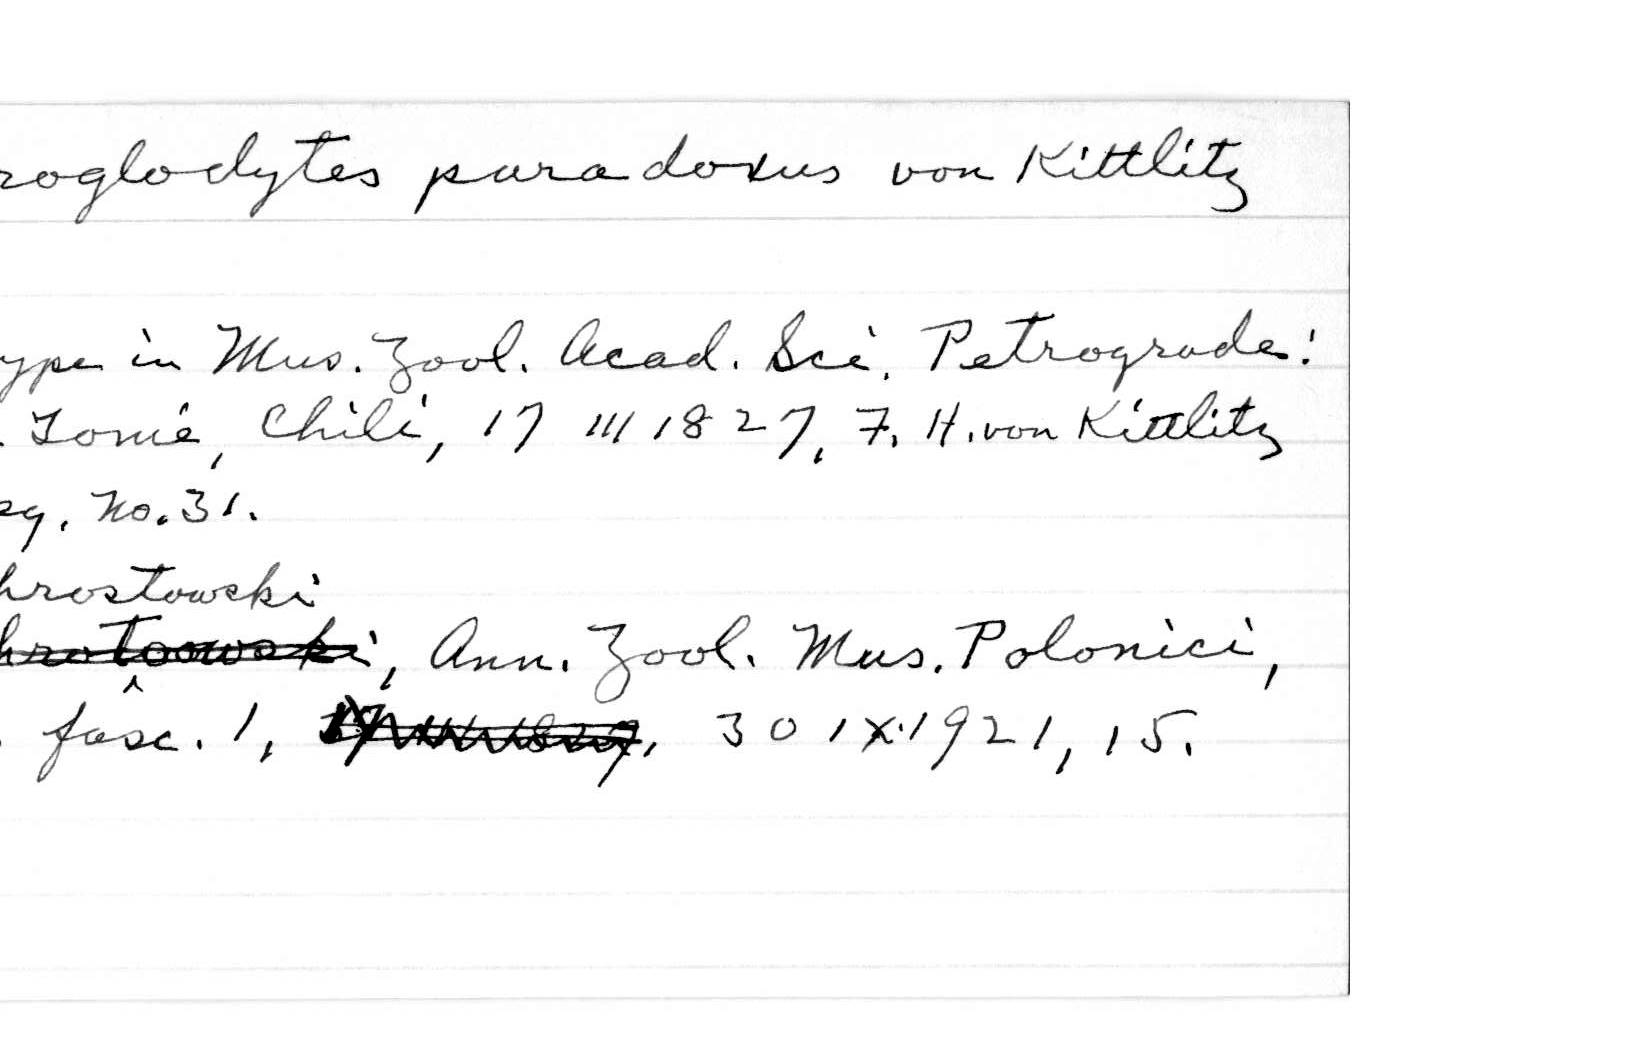 roglodytes paradoxus von Kittlitz
ype in Mus. Zool. Acad. Sci. Petrograde:
. Tomé, Chili, 17 III 1827, F. H. von Kittlitz
eg. No. 31.
hrostowski
hrotoowski, Ann. Zool. Mus. Polonici,
. fasc. 1, 17 III 1827, 30 IX 1921, 15.